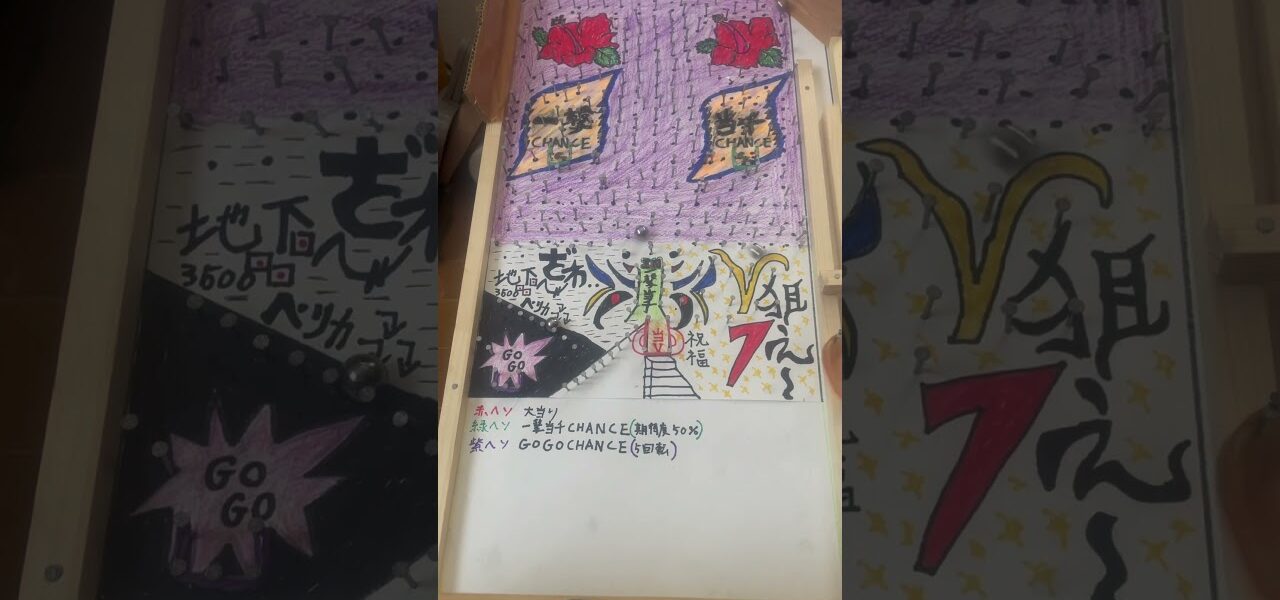 一撃
CHANCE
当千
CHANCE
ざわ..
地下
3500
ペリカ
GO
GO
一撃当
当
V
祝
福
V狙
7え～
赤ヘソ 大当り
緑ヘソ 一撃当千CHANCE(期待度50%)
紫ヘソ GOGOCHANCE(5回転)